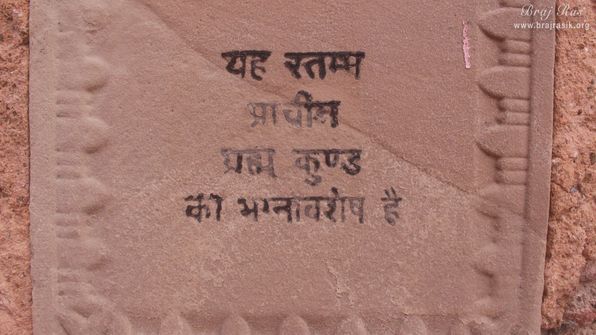 Braj Ras
www.brajrasik.org
यह स्तम्भ
प्राचीन
ब्रह्म कुण्ड
का भग्नावशेष है